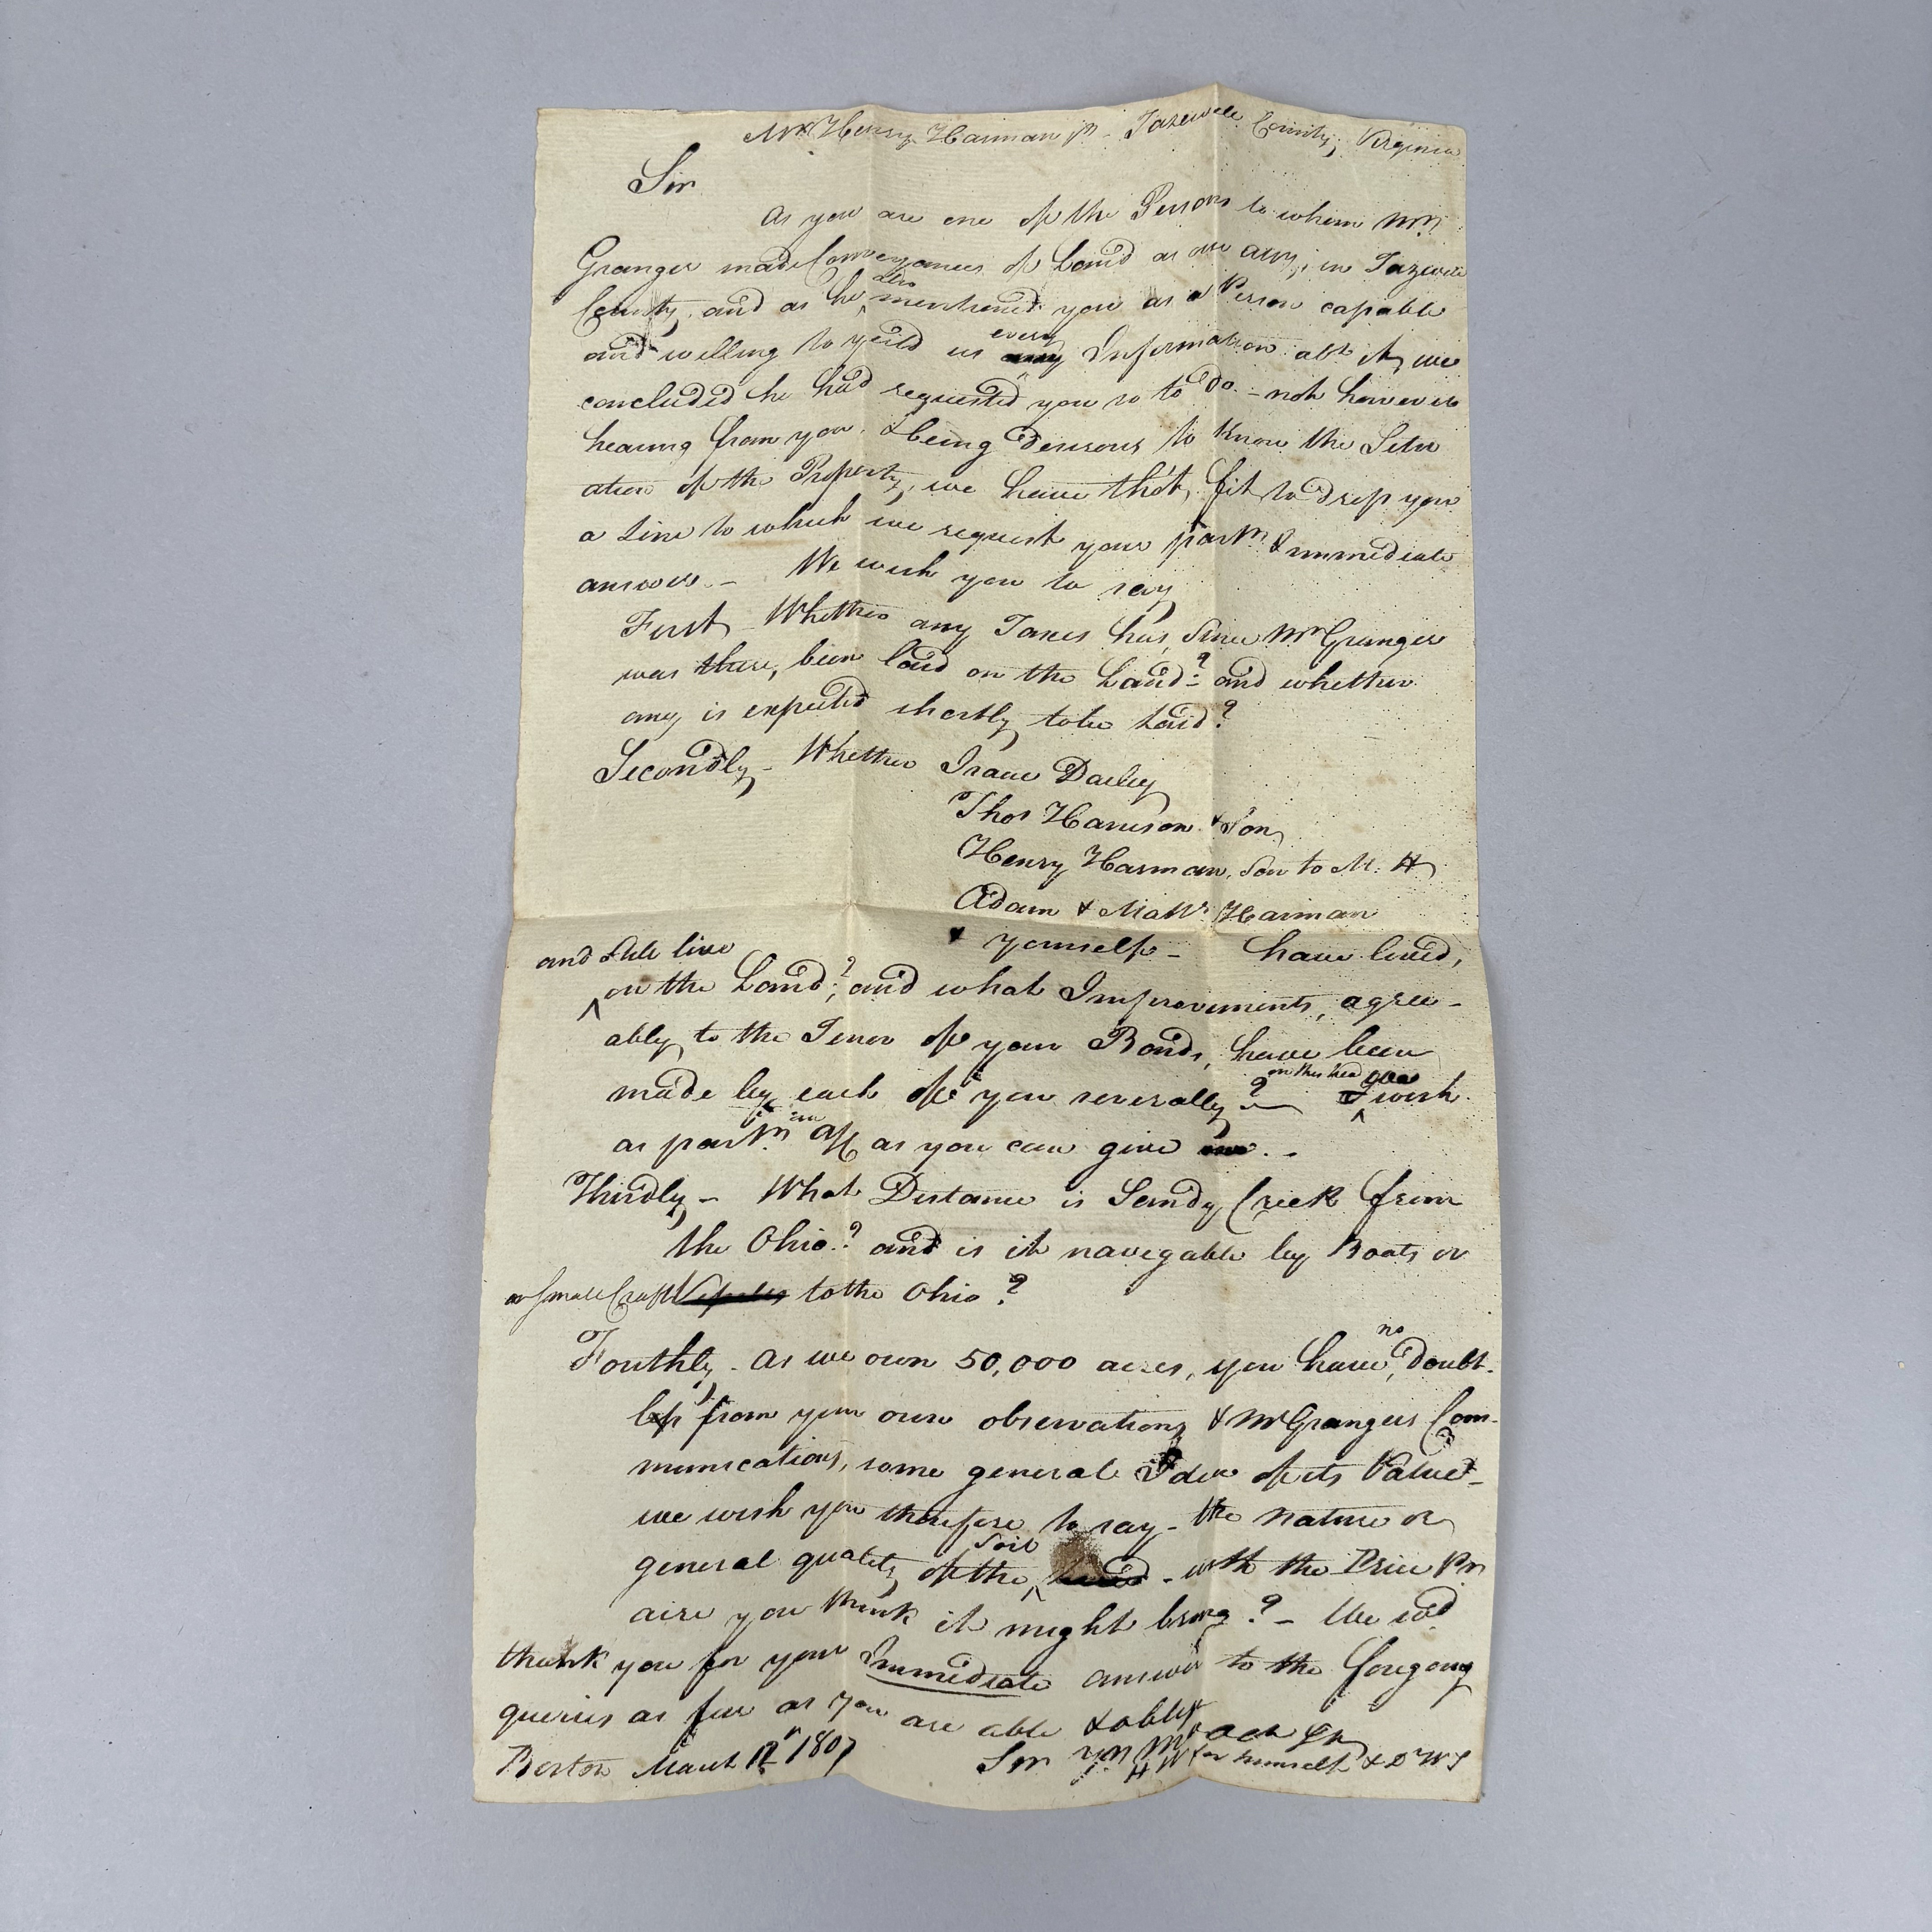 Mr. Henry Harman jr - Tazewell County, Virginia
Sir
As you are one of the Persons to whom Mr.
Granger made Conveyances of Land as our atty, in Tazewell
County, and as he also mentioned you as a Person capable
and willing to yeild us every any Information abt it, we
concluded he had requested you so to do. - not however
hearing from you, & being desirous to know the Situ
ation of the Property, we have tho't fit to drop you
a Line to which we request your partr. & immediate
answer. - We wish you to say
First Whether any Taxes has, Since Mr Granger
was there, been laid on the Land? - and whether
any is expected shortly to be laid?
Secondly - Whether Isaac Dailey
Thos Harrison & Son
Henry Harman, Son to M. H
Adam & Matts Harman
& yourself - have lived,
and still live
on the Land?; and what Improvements, agree-
ably to the Tenor of your Bonds, have been
made by each of you severally? - I on this head we wish
as partr. an a/c as you can give me. -
Thirdly - What Distance is Sandy Creek from
the Ohio? and is it navegable by Boats or
or Small Craft Vessels to the Ohio?
Fouthly - As we own 50,000 acres, you have no doubt-
less from your own observations & Mr Grangers Com-
munications, some general Idea of its Value -
we wish you therefore to say - the nature or
general quality of the Soil Land - with the Price Pr
acre you think it might bring? - We wd
thank you for your Immediate answer to the foregoing
queries as far as you are able & oblige
Boston March 12 1807 Sir Yr Mo
H W for himself & D W S